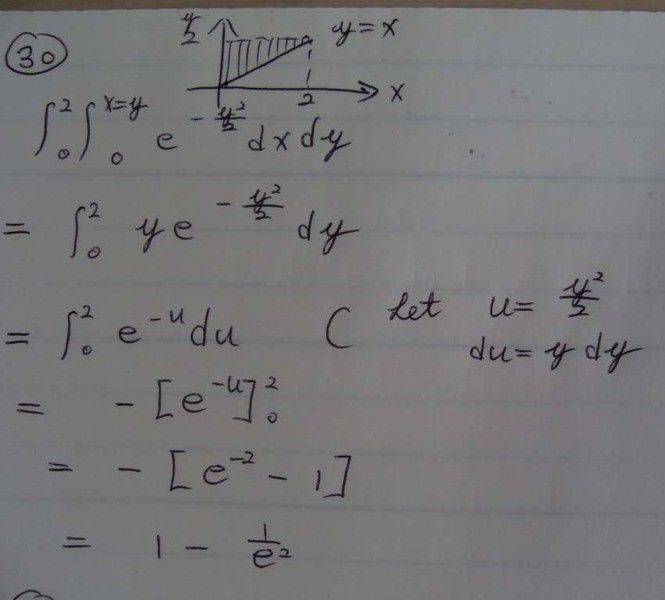 30 y 2 y = x
2 x
∫₀² ∫₀^{x=y} e^{-y²/2} dx dy
= ∫₀² y e^{-y²/2} dy
= ∫₀² e^{-u} du ( let u = y²/2
du = y dy
= - [e^{-u}]₀²
= - [e^{-2} - 1]
= 1 - 1/e²